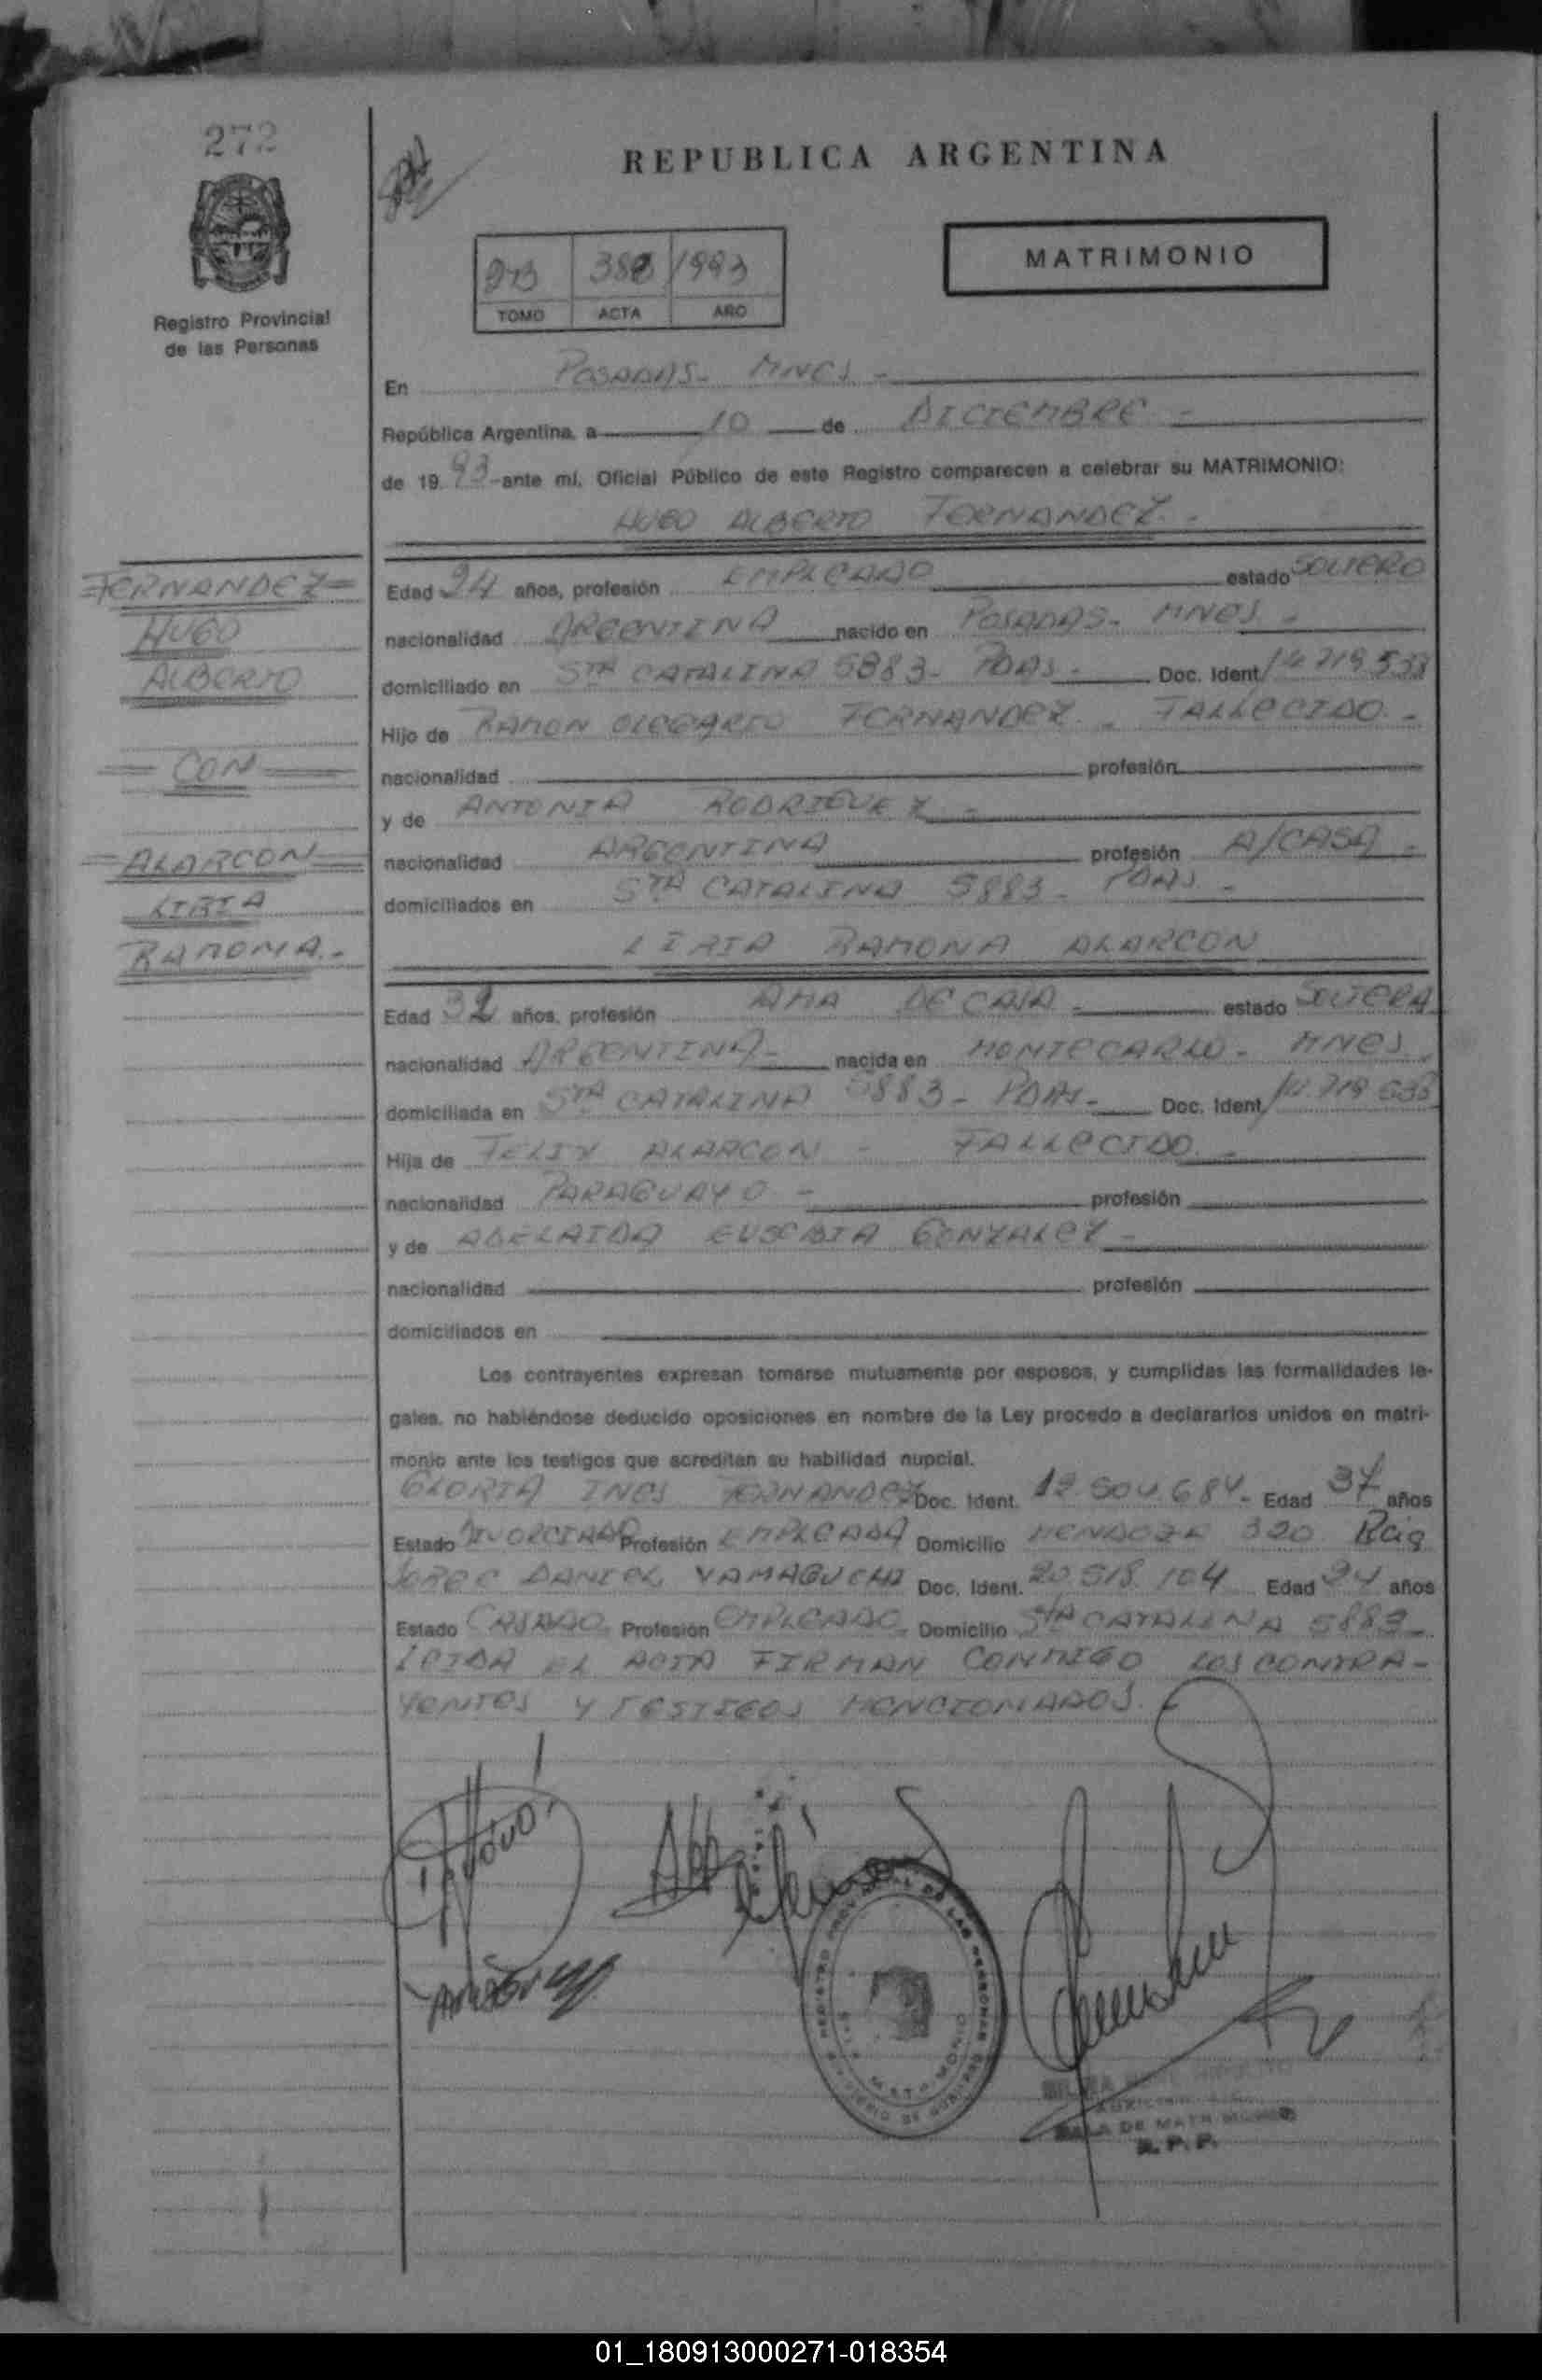 272
REPUBLICA ARGENTINA
273 388 1993
TOMO ACTA AÑO
MATRIMONIO
Registro Provincial
de las Personas
En POSADAS- MNES -
República Argentina, a 10 de DICIEMBRE -
de 1993 ante mí, Oficial Público de este Registro comparecen a celebrar su MATRIMONIO:
HUGO ALBERTO FERNANDEZ.-
FERNANDEZ=
HUGO
ALBERTO
=CON=
=ALARCON=
LIBIA
RAMONA.-
Edad 24 años, profesión EMPLEADO estado SOLTERO
nacionalidad ARGENTINA nacido en POSADAS- MNES -
domiciliado en STA CATALINA 5883- PDAS- Doc. Ident
Hijo de RAMON OLEGARIO FERNANDEZ - FALLECIDO -
nacionalidad profesión
y de ANTONIA RODRIGUEZ -
nacionalidad ARGENTINA profesión A/CASA -
domiciliados en STA CATALINA 5883- PDAS -
LIBIA RAMONA ALARCON
Edad 32 años, profesión AMA DE CASA - estado SOLTERA
nacionalidad ARGENTINA- nacida en MONTECARLO- MNES
domiciliada en STA CATALINA 5883- PDAS- Doc. Ident
Hija de FELIX ALARCON - FALLECIDO -
nacionalidad PARAGUAYO - profesión
y de ADELAIDA EUSEBIA GONZALEZ -
nacionalidad profesión
domiciliados en
Los contrayentes expresan tomarse mutuamente por esposos, y cumplidas las formalidades le-
gales, no habiéndose deducido oposiciones en nombre de la Ley procedo a declararlos unidos en matri-
monio ante los testigos que acreditan su habilidad nupcial.
GLORIA INES FERNANDEZ Doc. Ident. 12.504.684- Edad 37 años
Estado DIVORCIADA Profesión EMPLEADA Domicilio MENDOZA 320
JORGE DANIEL YAMAGUCHI Doc. Ident. 20.518.104 Edad 24 años
Estado CASADO Profesión EMPLEADO Domicilio STA CATALINA 5883
LEIDA EL ACTA FIRMAN CONMIGO LOS CONTRA-
YENTES Y TESTIGOS MENCIONADOS.-
REGISTRO PROVINCIAL DE LAS PERSONAS
SALA DE MATRIMONIOS
R. P. P.
01_180913000271-018354